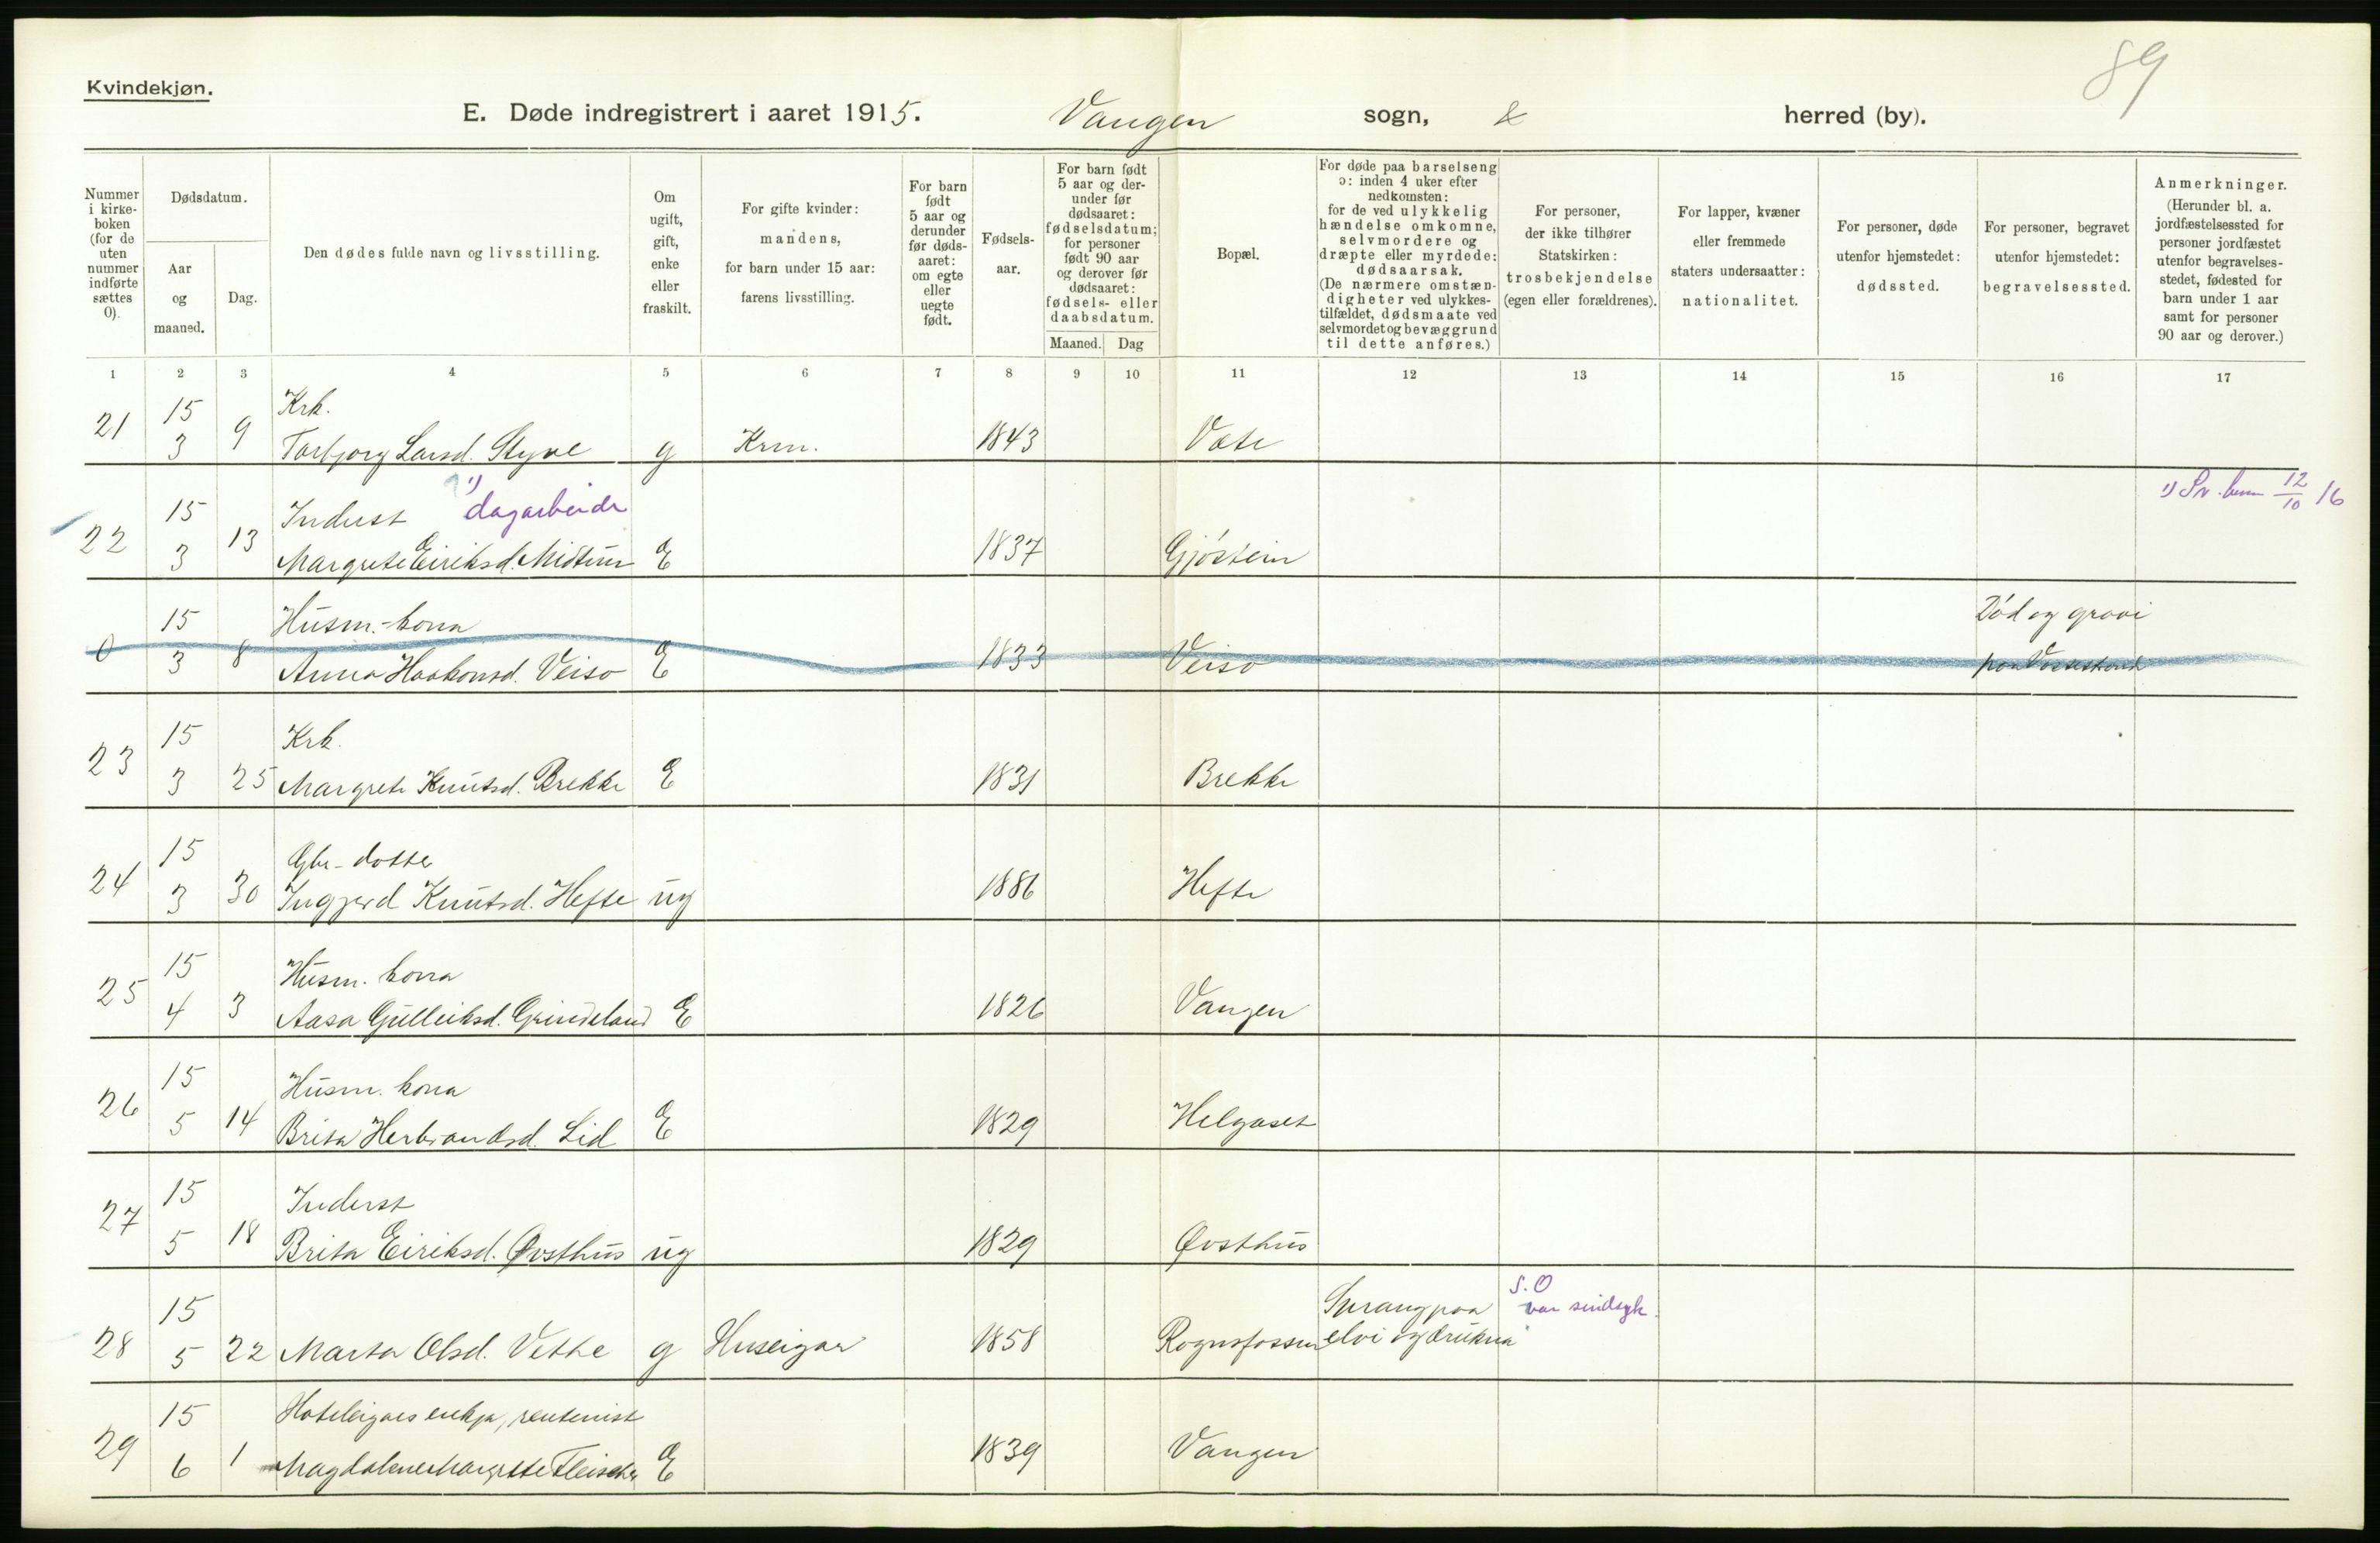 89
Kvindekjøn.
E. Døde indregistrert i aaret 1915. Vangen sogn, & herred (by).
Nummer i kirkeboken (for de uten nummer indførte sættes 0).
Dødsdatum.
Aar og maaned.
Dag.
Den dødes fulde navn og livsstilling.
Om ugift, gift, enke eller fraskilt.
For gifte kvinder: mandens, for barn under 15 aar: farens livsstilling.
For barn født 5 aar og derunder før dødsaaret: om egte eller uegte født.
Fødselsaar.
For barn født 5 aar og derunder før dødsaaret: fødselsdatum; for personer født 90 aar og derover før dødsaaret: fødsels- eller daabsdatum.
Maaned. Dag
Bopæl.
For døde paa barselseng ɔ: inden 4 uker efter nedkomsten: for de ved ulykkelig hændelse omkomne, selvmordere og dræpte eller myrdede: dødsaarsak. (De nærmere omstændigheter ved ulykkestilfældet, dødsmaate ved selvmordet og bevæggrund til dette anføres.)
For personer, der ikke tilhører Statskirken: trosbekjendelse (egen eller forældrenes).
For lapper, kvæner eller fremmede staters undersaatter: nationalitet.
For personer, døde utenfor hjemstedet: dødssted.
For personer, begravet utenfor hjemstedet: begravelsessted.
Anmerkninger. (Herunder bl. a. jordfæstelsessted for personer jordfæstet utenfor begravelsesstedet, fødested for barn under 1 aar samt for personer 90 aar og derover.)
1 2 3 4 5 6 7 8 9 10 11 12 13 14 15 16 17
15 Krk.
21 3 9 Torbjorg Larsd. Styve g Krm. 1843 Væte
15 Inderst 1) dagarbeide 1) Sv. 12/10 16
22 3 13 Margrete Eiriksd. Midtun E 1837 Gjóstein
15 Husm.-kona Dód og gravi
0 3 8 Anna Haakonsd. Veiso E 1833 Veiso paa Vossestrand
15 Krk.
23 3 25 Margrete Knutsd. Brekke E 1831 Brekke
15 Gbr-dotter
24 3 30 Ingjerd Knutsd. Hefte ug 1886 Hefte
15 Husm. kona
25 4 3 Aasa Gulleiksd. Grindeland E 1826 Vangen
15 Husm. kona
26 5 14 Brita Herbrandsd. Lid E 1829 Helgaset
15 Inderst
27 5 18 Brita Eiriksd. Øvsthus ug 1829 Øvsthus
15 Sprang paa S.O var sindsyk.
28 5 22 Marta Olsd. Vethe g Huseigar 1858 Rognsfossen elvi og drukna
15 Hoteleigars enkja, rentenist
29 6 1 Magdalene Margrethe Fleischer E 1839 Vangen